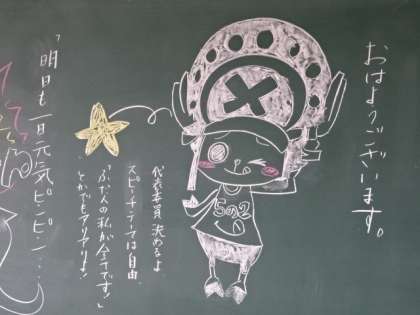 おはようございます。
5の2
代表委員 決めるよ
スピーチテーマは自由。
「ふだ人の私が全てです!」
とかでもアリアリよ!
「明日も一日元気ピンピン…